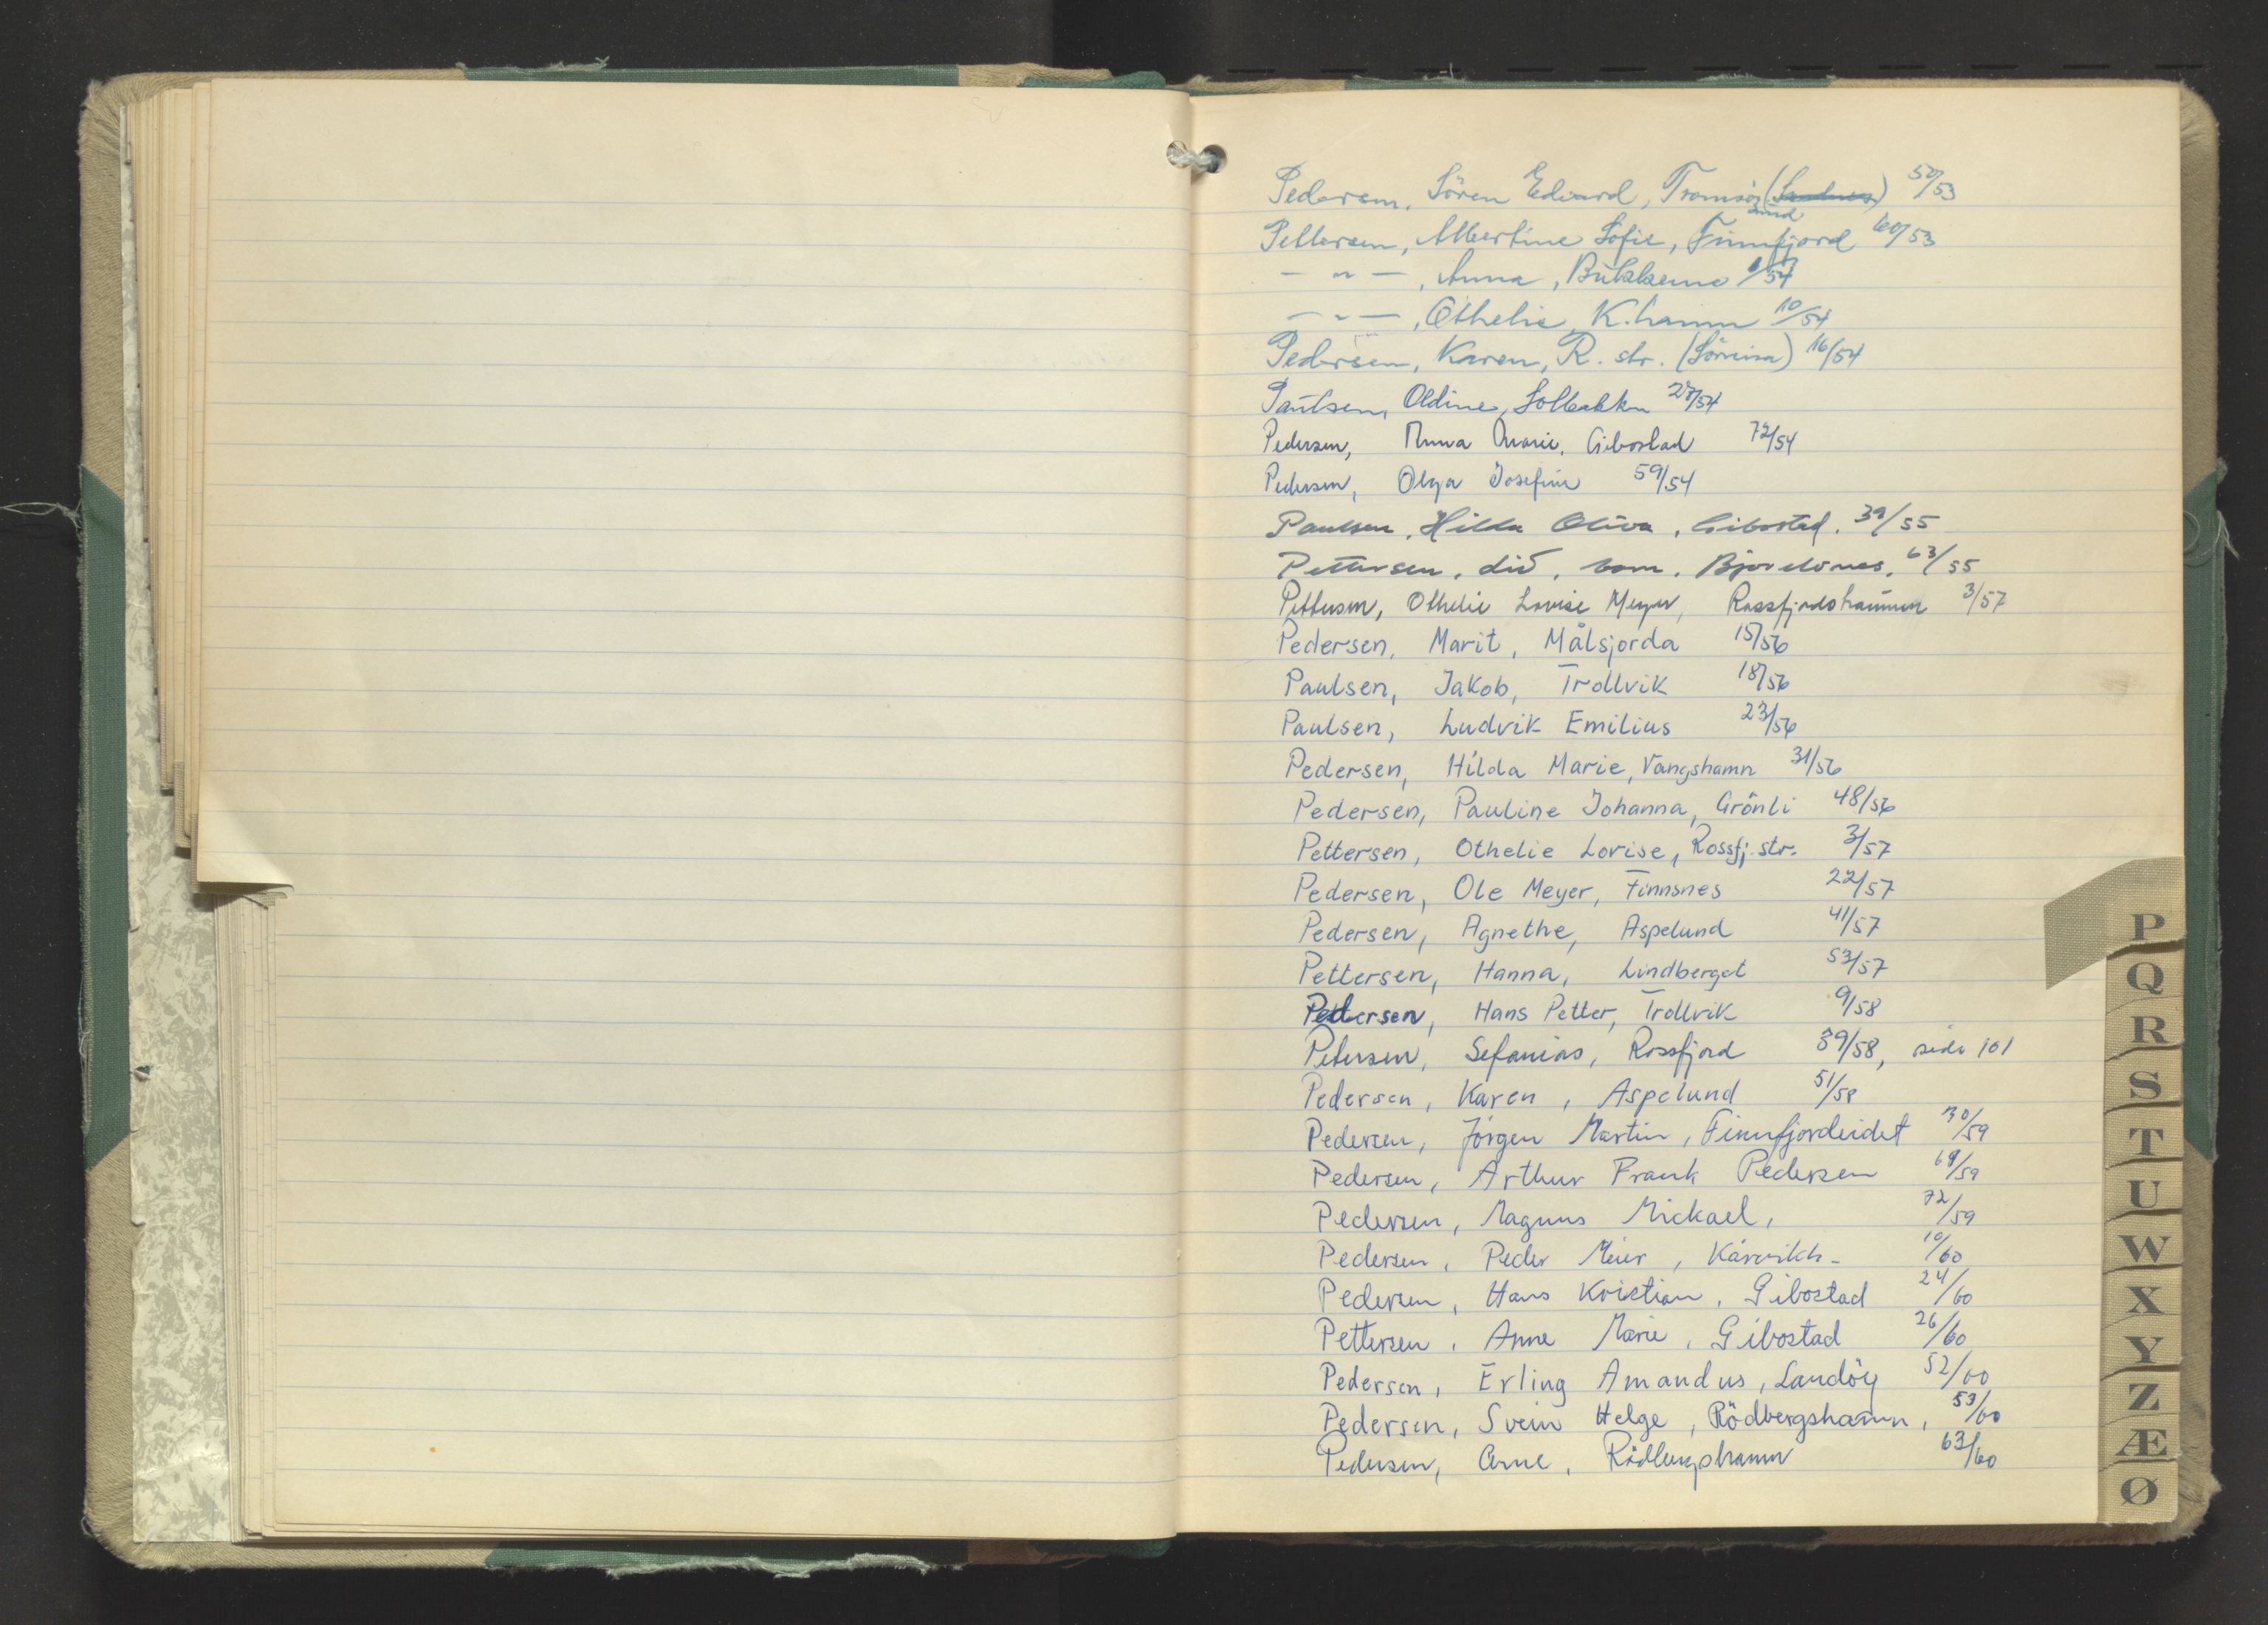 Pedersen, Sören Edvard, Tromsö (Sandnes) 50/53
sund
Pettersen, Albertine Sofie, Finnfjord 60/53
— " —, Anna, Bukkemo 6/54
— " —, Othelie, K.hamn 10/54
Pedersen, Karen, R. str. (Sörreisa) 16/54
Paulsen, Oldine, Solbakken 27/54
Pedersen, Anna Marie, Gibostad 72/54
Pedersen, Olga Josefine 59/54
Paulsen, Hilda Oliva, Gibostad. 39/55
Pettersen, barn, Bjorelvnes, 63/55
Pettersen, Othelie Lovise Meyer, Rossfjordstraumen 3/57
Pedersen, Marit, Målsjorda 15/56
Paulsen, Jakob, Trollvik 18/56
Paulsen, Ludvik Emilius 23/56
Pedersen, Hilda Marie, Vangshamn 31/56
Pedersen, Pauline Johanna, Grönli 48/56
Pettersen, Othelie Lovise, Rossfj. str. 3/57
Pedersen, Ole Meyer, Finnsnes 22/57
Pedersen, Agnethe, Aspelund 41/57
Pettersen, Hanna, Lindberget 53/57
Pettersen, Hans Petter, Trollvik 9/58
Petersen, Sefanias, Rossfjord 39/58, side 101
Pedersen, Karen, Aspelund 51/58
Pedersen, Jörgen Martin, Finnfjordeidet 30/59
Pedersen, Arthur Frank Pedersen 69/59
Pedersen, Magnus Mickael, 72/59
Pedersen, Peder Meier, Kårvikh- 10/60
Pedersen, Hans Kristian, Gibostad 24/60
Pettersen, Anne Marie, Gibostad 26/60
Pedersen, Erling Amandus, Landöy 52/60
Pedersen, Svein Helge, Rödbergshamn, 53/60
Pedersen, Arne, Rödbergshamn 63/60
P
Q
R
S
T
U
W
X
Y
Z
Æ
Ø